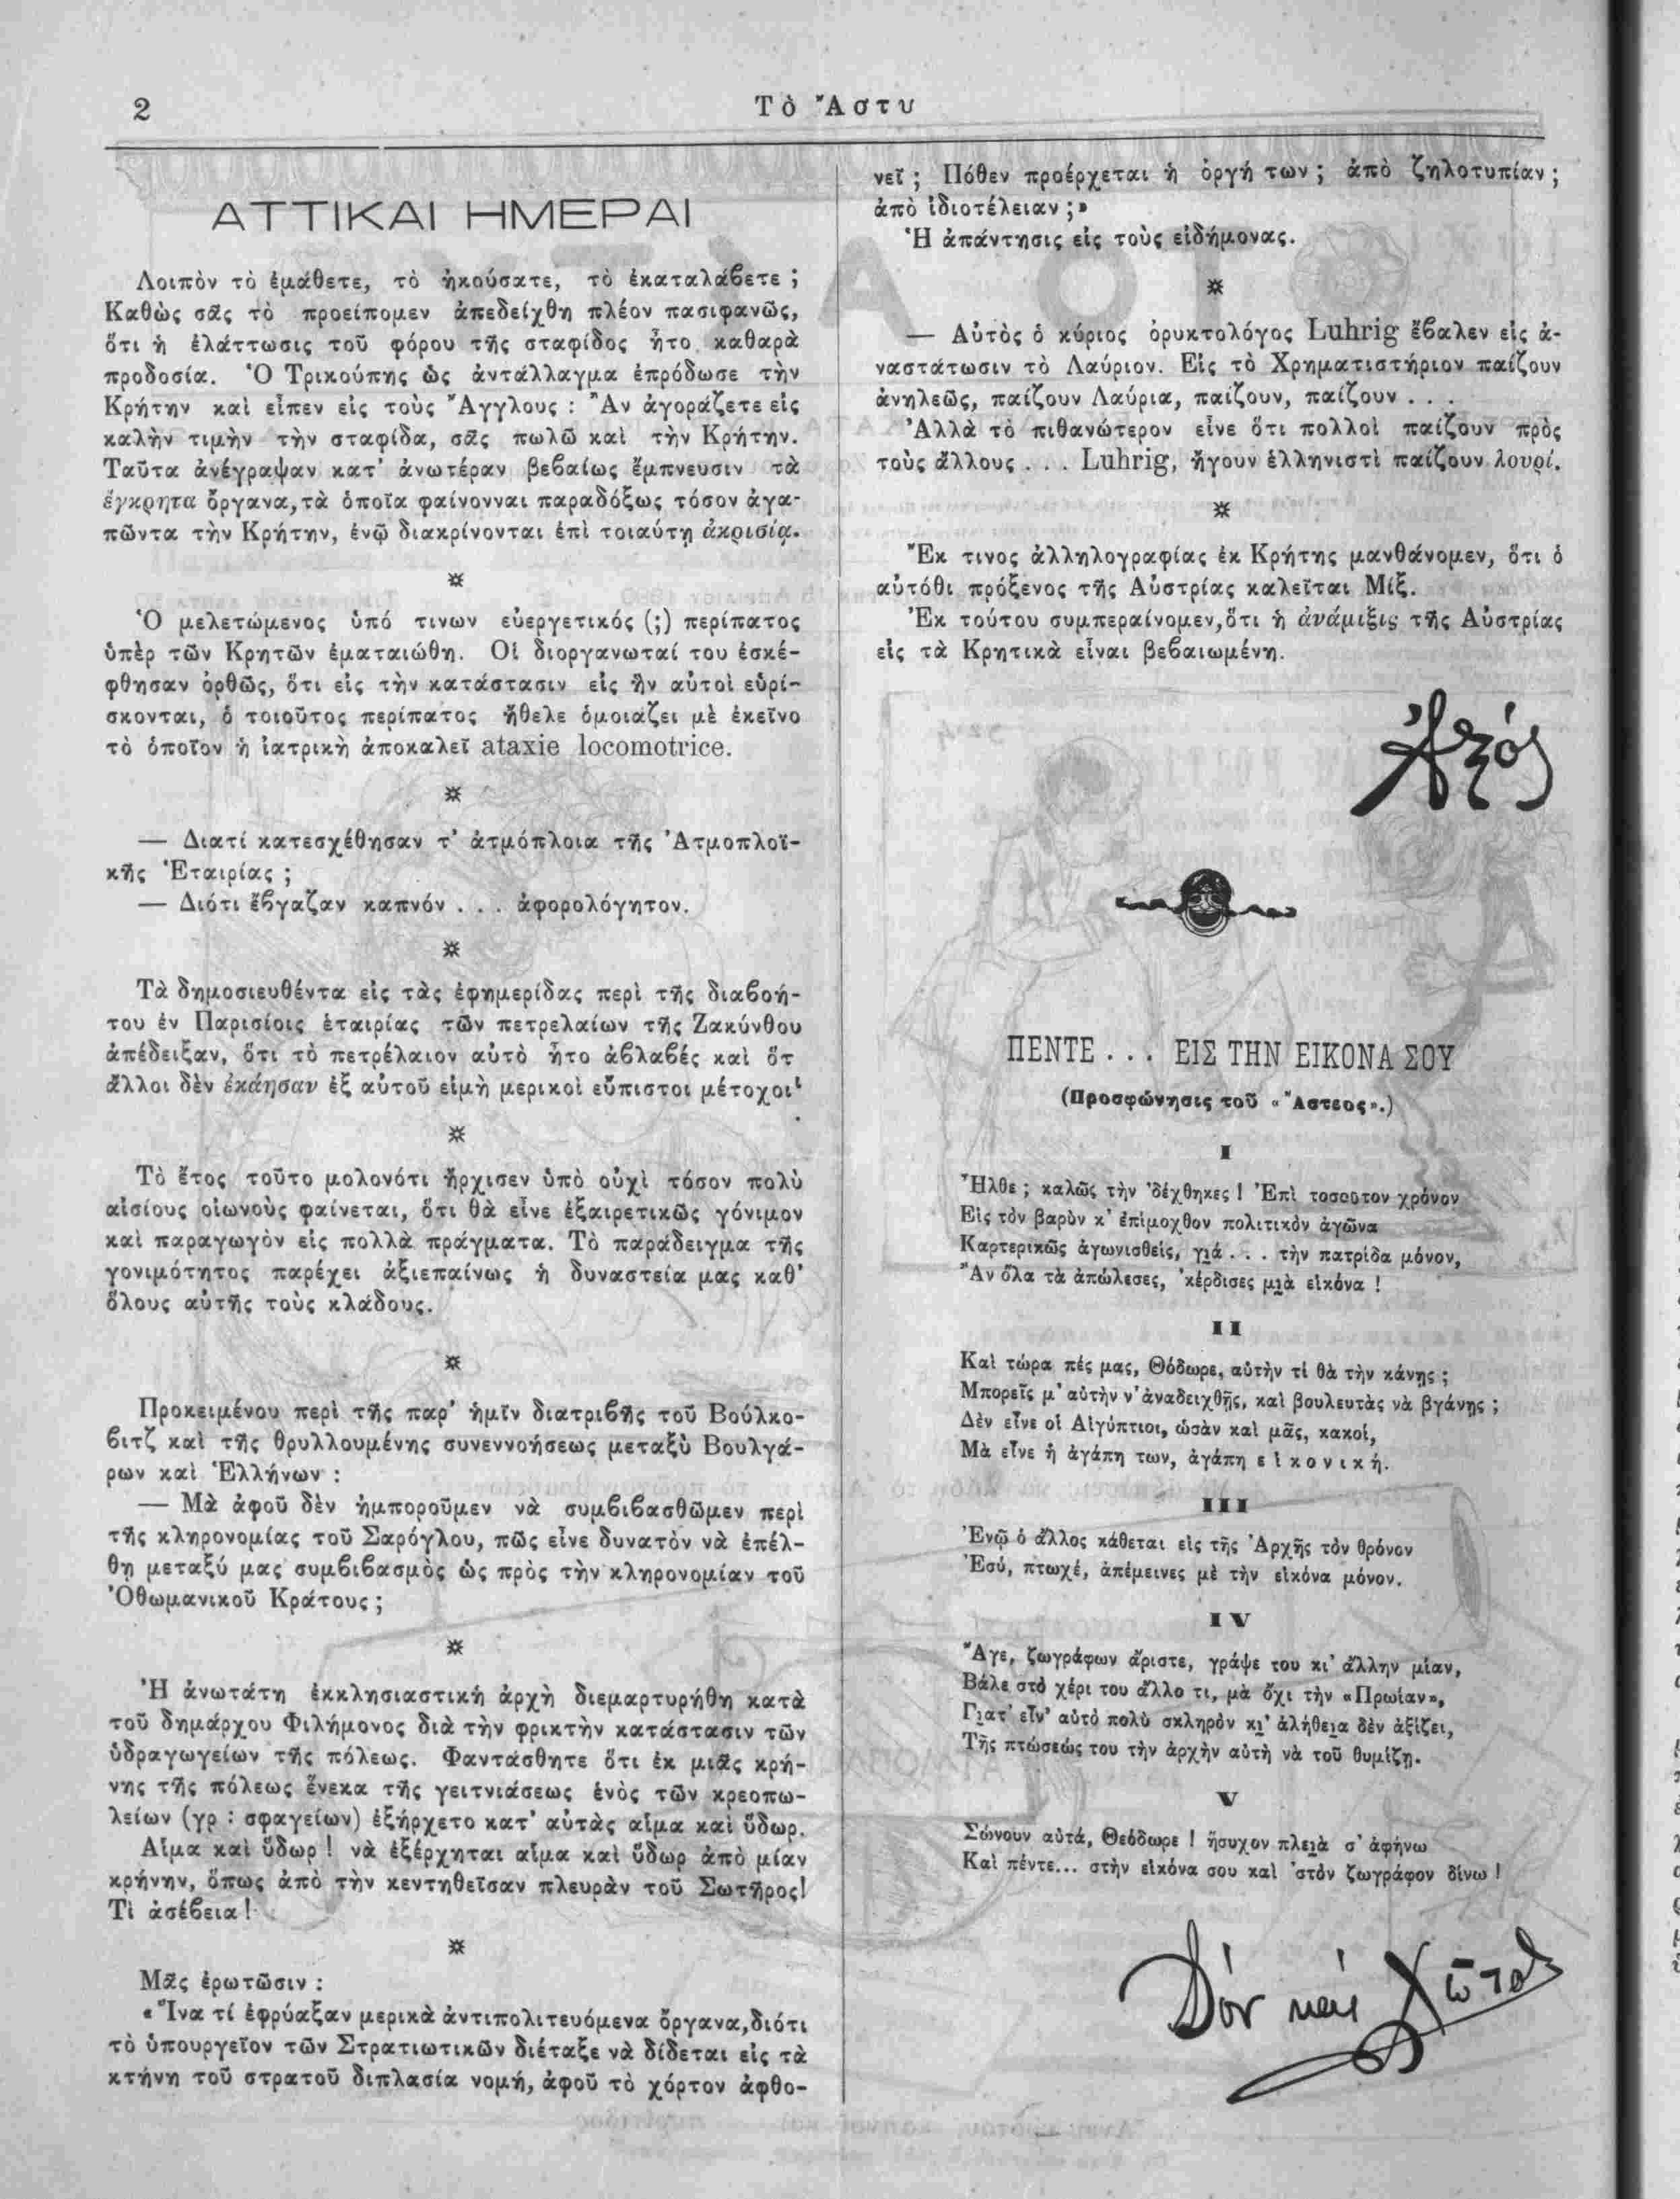 2
Τὸ Ἄστυ
ΑΤΤΙΚΑΙ ΗΜΕΡΑΙ
Λοιπὸν τὸ ἐμάθετε, τὸ ἠκούσατε, τὸ ἐκαταλάβετε ;
Καθὼς σᾶς τὸ προείπομεν ἀπεδείχθη πλέον πασιφανῶς,
ὅτι ἡ ἐλάττωσις τοῦ φόρου τῆς σταφίδος ἦτο καθαρὰ
προδοσία. Ὁ Τρικούπης ὡς ἀντάλλαγμα ἐπρόδωσε τὴν
Κρήτην καὶ εἶπεν εἰς τοὺς Ἄγγλους : Ἂν ἀγοράζετε εἰς
καλὴν τιμὴν τὴν σταφίδα, σᾶς πωλῶ καὶ τὴν Κρήτην.
Ταῦτα ἀνέγραψαν κατ' ἀνωτέραν βεβαίως ἔμπνευσιν τὰ
ἔγκρητα ὄργανα, τὰ ὁποῖα φαίνονναι παραδόξως τόσον ἀγα-
πῶντα τὴν Κρήτην, ἐνῷ διακρίνονται ἐπὶ τοιαύτῃ ἀκρισίᾳ.
Ὁ μελετώμενος ὑπό τινων εὐεργετικός (;) περίπατος
ὑπὲρ τῶν Κρητῶν ἐματαιώθη. Οἱ διοργανωταί του ἐσκέ-
φθησαν ὀρθῶς, ὅτι εἰς τὴν κατάστασιν εἰς ἣν αὐτοὶ εὑρί-
σκονται, ὁ τοιοῦτος περίπατος ἤθελε ὁμοιάζει μὲ ἐκεῖνο
τὸ ὁποῖον ἡ ἰατρικὴ ἀποκαλεῖ ataxie locomotrice.
— Διατί κατεσχέθησαν τ' ἀτμόπλοια τῆς Ἀτμοπλοϊ-
κῆς Ἑταιρίας ;
— Διότι ἔβγαζαν καπνόν . . . ἀφορολόγητον.
Τὰ δημοσιευθέντα εἰς τὰς ἐφημερίδας περὶ τῆς διαβοή-
του ἐν Παρισίοις ἑταιρίας τῶν πετρελαίων τῆς Ζακύνθου
ἀπέδειξαν, ὅτι τὸ πετρέλαιον αὐτὸ ἦτο ἀβλαβές καὶ ὅτ
ἄλλοι δὲν ἐκάησαν ἐξ αὐτοῦ εἰμὴ μερικοὶ εὔπιστοι μέτοχοι
Τὸ ἔτος τοῦτο μολονότι ἤρχισεν ὑπὸ οὐχὶ τόσον πολὺ
αἰσίους οἰωνοὺς φαίνεται, ὅτι θὰ εἶνε ἐξαιρετικῶς γόνιμον
καὶ παραγωγὸν εἰς πολλὰ πράγματα. Τὸ παράδειγμα τῆς
γονιμότητος παρέχει ἀξιεπαίνως ἡ δυναστεία μας καθ'
ὅλους αὐτῆς τοὺς κλάδους.
Προκειμένου περὶ τῆς παρ' ἡμῖν διατριβῆς τοῦ Βούλκο-
βιτζ καὶ τῆς θρυλλουμένης συνεννοήσεως μεταξὺ Βουλγά-
ρων καὶ Ἑλλήνων :
— Μὰ ἀφοῦ δὲν ἠμποροῦμεν νὰ συμβιβασθῶμεν περὶ
τῆς κληρονομίας τοῦ Σαρόγλου, πῶς εἶνε δυνατὸν νὰ ἐπέλ-
θῃ μεταξύ μας συμβιβασμὸς ὡς πρὸς τὴν κληρονομίαν τοῦ
Ὀθωμανικοῦ Κράτους ;
Ἡ ἀνωτάτη ἐκκλησιαστικὴ ἀρχὴ διεμαρτυρήθη κατὰ
τοῦ δημάρχου Φιλήμονος διὰ τὴν φρικτὴν κατάστασιν τῶν
ὑδραγωγείων τῆς πόλεως. Φαντάσθητε ὅτι ἐκ μιᾶς κρή-
νης τῆς πόλεως ἕνεκα τῆς γειτνιάσεως ἑνὸς τῶν κρεοπω-
λείων (γρ : σφαγείων) ἐξήρχετο κατ' αὐτὰς αἷμα καὶ ὕδωρ.
Αἷμα καὶ ὕδωρ ! νὰ ἐξέρχηται αἷμα καὶ ὕδωρ ἀπὸ μίαν
κρήνην, ὅπως ἀπὸ τὴν κεντηθεῖσαν πλευρὰν τοῦ Σωτῆρος!
Τὶ ἀσέβεια!
Μᾶς ἐρωτῶσιν :
«Ἵνα τί ἐφρύαξαν μερικὰ ἀντιπολιτευόμενα ὄργανα, διότι
τὸ ὑπουργεῖον τῶν Στρατιωτικῶν διέταξε νὰ δίδεται εἰς τὰ
κτήνη τοῦ στρατοῦ διπλασία νομή, ἀφοῦ τὸ χόρτον ἀφθο-
νεῖ ; Πόθεν προέρχεται ἡ ὀργή των ; ἀπὸ ζηλοτυπίαν ;
ἀπὸ ἰδιοτέλειαν ;»
Ἡ ἀπάντησις εἰς τοὺς εἰδήμονας.
— Αὐτὸς ὁ κύριος ὀρυκτολόγος Luhrig ἔβαλεν εἰς ἀ-
ναστάτωσιν τὸ Λαύριον. Εἰς τὸ Χρηματιστήριον παίζουν
ἀνηλεῶς, παίζουν Λαύρια, παίζουν, παίζουν . . .
Ἀλλὰ τὸ πιθανώτερον εἶνε ὅτι πολλοὶ παίζουν πρὸς
τοὺς ἄλλους . . . Luhrig, ἤγουν ἑλληνιστὶ παίζουν λουρί.
Ἔκ τινος ἀλληλογραφίας ἐκ Κρήτης μανθάνομεν, ὅτι ὁ
αὐτόθι πρόξενος τῆς Αὐστρίας καλεῖται Μίξ.
Ἐκ τούτου συμπεραίνομεν, ὅτι ἡ ἀνάμιξις τῆς Αὐστρίας
εἰς τὰ Κρητικὰ εἶναι βεβαιωμένη.
ΠΕΝΤΕ . . . ΕΙΣ ΤΗΝ ΕΙΚΟΝΑ ΣΟΥ
(Προσφώνησις τοῦ «Ἄστεος».)
I
Ἦλθε ; καλῶς τὴν 'δέχθηκες ! Ἐπὶ τοσοῦτον χρόνον
Εἰς τὸν βαρὺν κ' ἐπίμοχθον πολιτικὸν ἀγῶνα
Καρτερικῶς ἀγωνισθείς, γιά . . . τὴν πατρίδα μόνον,
Ἂν ὅλα τὰ ἀπώλεσες, 'κέρδισες μιὰ εἰκόνα !
II
Καὶ τώρα πές μας, Θόδωρε, αὐτὴν τί θὰ τὴν κάνῃς ;
Μπορεῖς μ' αὐτὴν ν' ἀναδειχθῇς, καὶ βουλευτὰς νὰ βγάνῃς ;
Δὲν εἶνε οἱ Αἰγύπτιοι, ὡσὰν καὶ μᾶς, κακοί,
Μὰ εἶνε ἡ ἀγάπη των, ἀγάπη εἰκονική.
III
Ἐνῷ ὁ ἄλλος κάθεται εἰς τῆς Ἀρχῆς τὸν θρόνον
Ἐσύ, πτωχέ, ἀπέμεινες μὲ τὴν εἰκόνα μόνον.
IV
Ἄγε, ζωγράφων ἄριστε, γράψε του κι' ἄλλην μίαν,
Βάλε στὸ χέρι του ἄλλο τι, μὰ ὄχι τὴν «Πρωίαν»,
Γιατ' εἶν' αὐτὸ πολὺ σκληρὸν κι' ἀλήθεια δὲν ἀξίζει,
Τῆς πτώσεώς του τὴν ἀρχὴν αὐτὴ νὰ τοῦ θυμίζῃ.
V
Σώνουν αὐτά, Θεόδωρε ! ἥσυχον πλειὰ σ' ἀφήνω
Καὶ πέντε... στὴν εἰκόνα σου καὶ 'στὸν ζωγράφον δίνω !
Δὸν καὶ Χῶτος